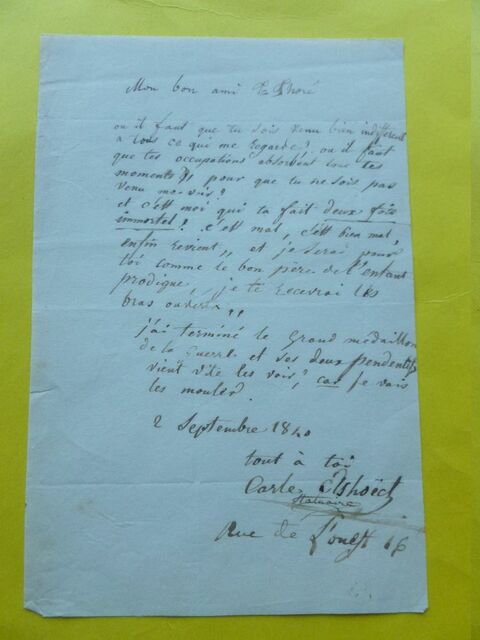 Mon bon ami Thoré
ou il faut que tu sois venu bien indifférent
a tous ce qui me regarde, ou il faut
que tes occupations absorbent tous tes
moments, pour que tu ne sois pas
venu me voir?
et c'est moi qui ta fait deux fois
immortel! c'est mal, c'est bien mal,
enfin revient, et je serai pour
toi comme le bon père de l'enfant
prodigue, je te recevrai les
bras ouverts,
j'ai terminé le Grand médaillon
de la guerre et ses deux pendentifs
vient vite les voir, car je vais
les mouler.
2 Septembre 1840
tout à toi
Carle Elshoëct
Statuaire
Rue de l'ouest 16